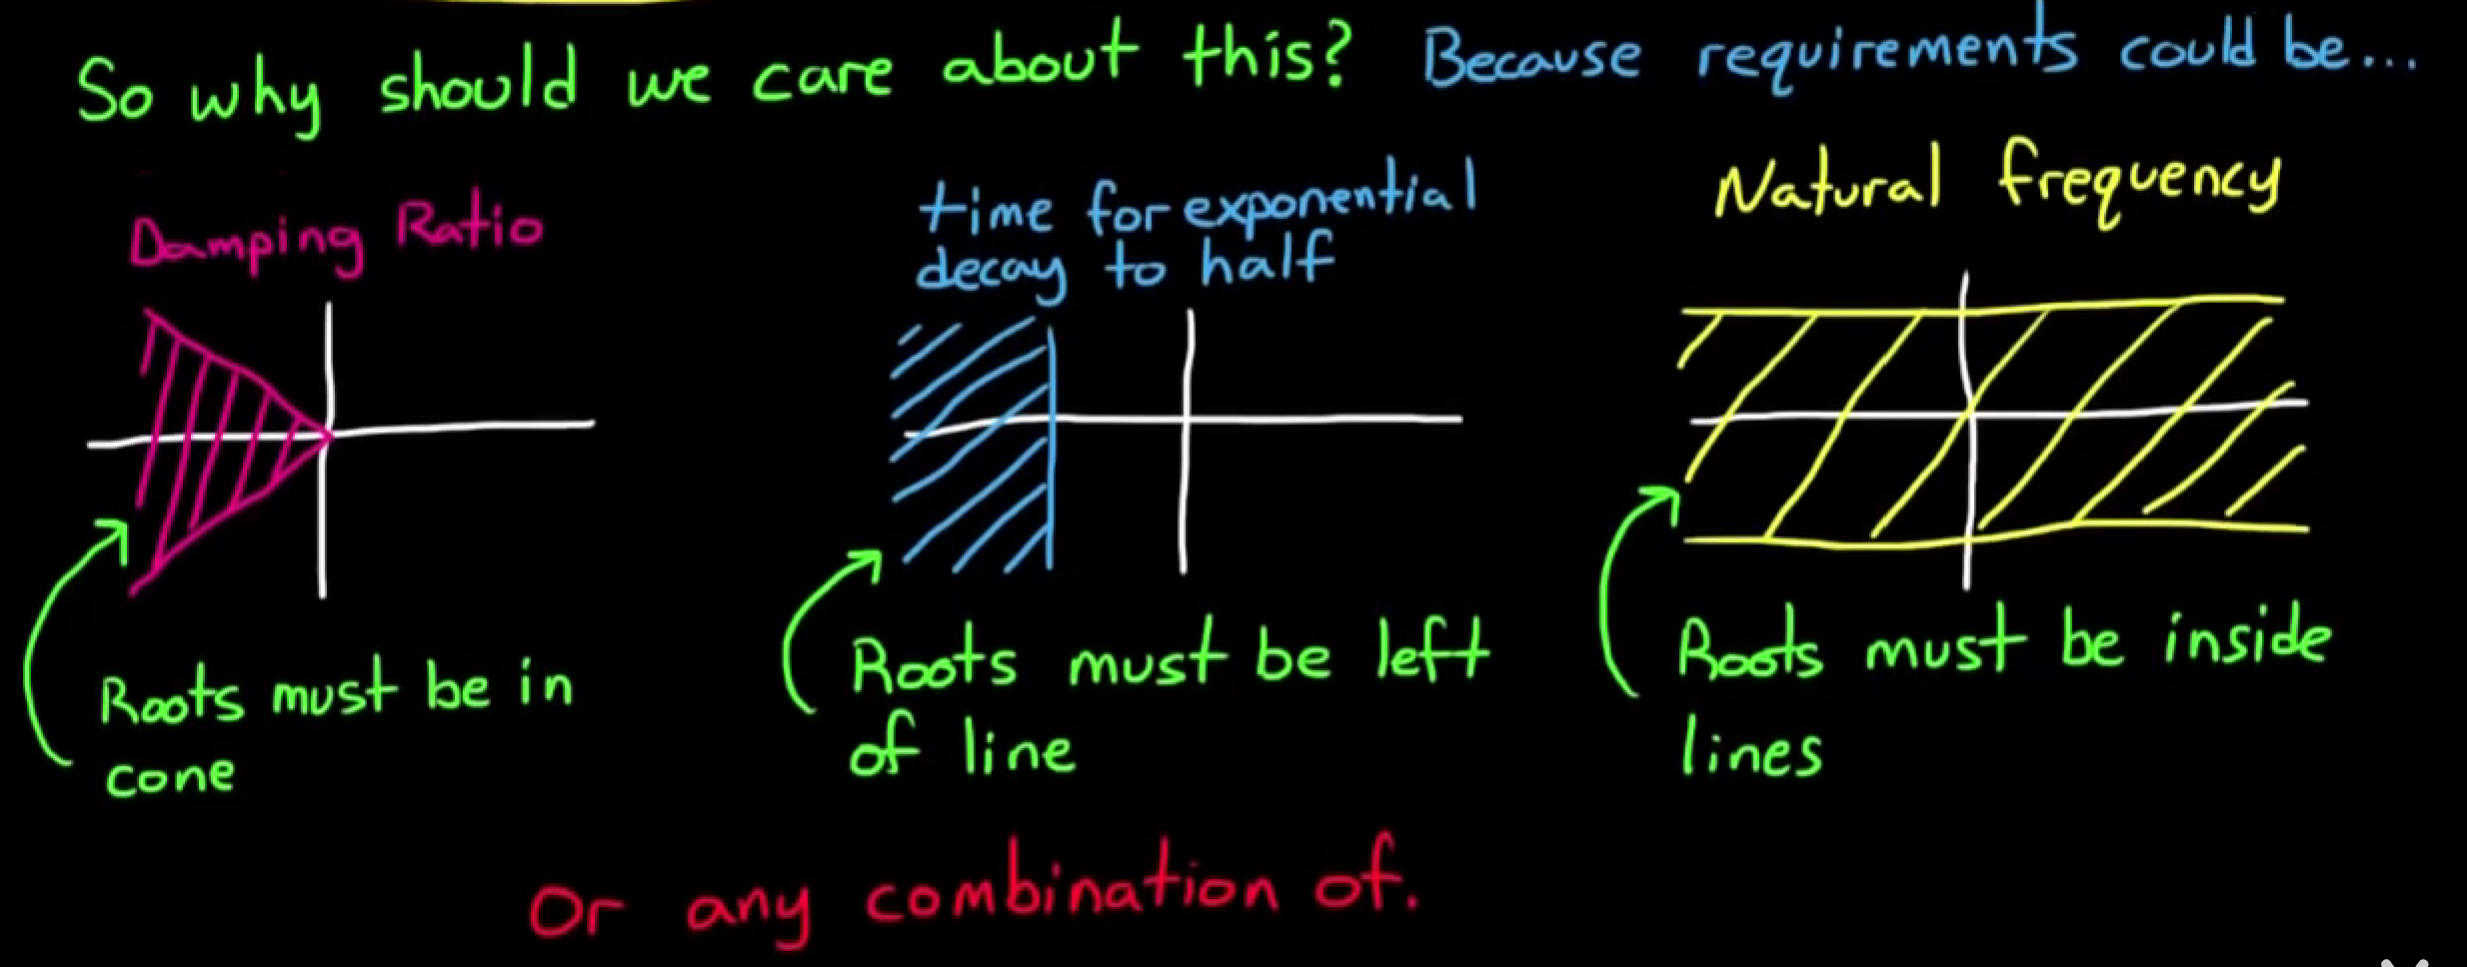 So why should we care about this? Because requirements could be...
Damping Ratio
time for exponential
decay to half
Natural frequency
Roots must be in
cone
Roots must be left
of line
Roots must be inside
lines
Or any combination of.